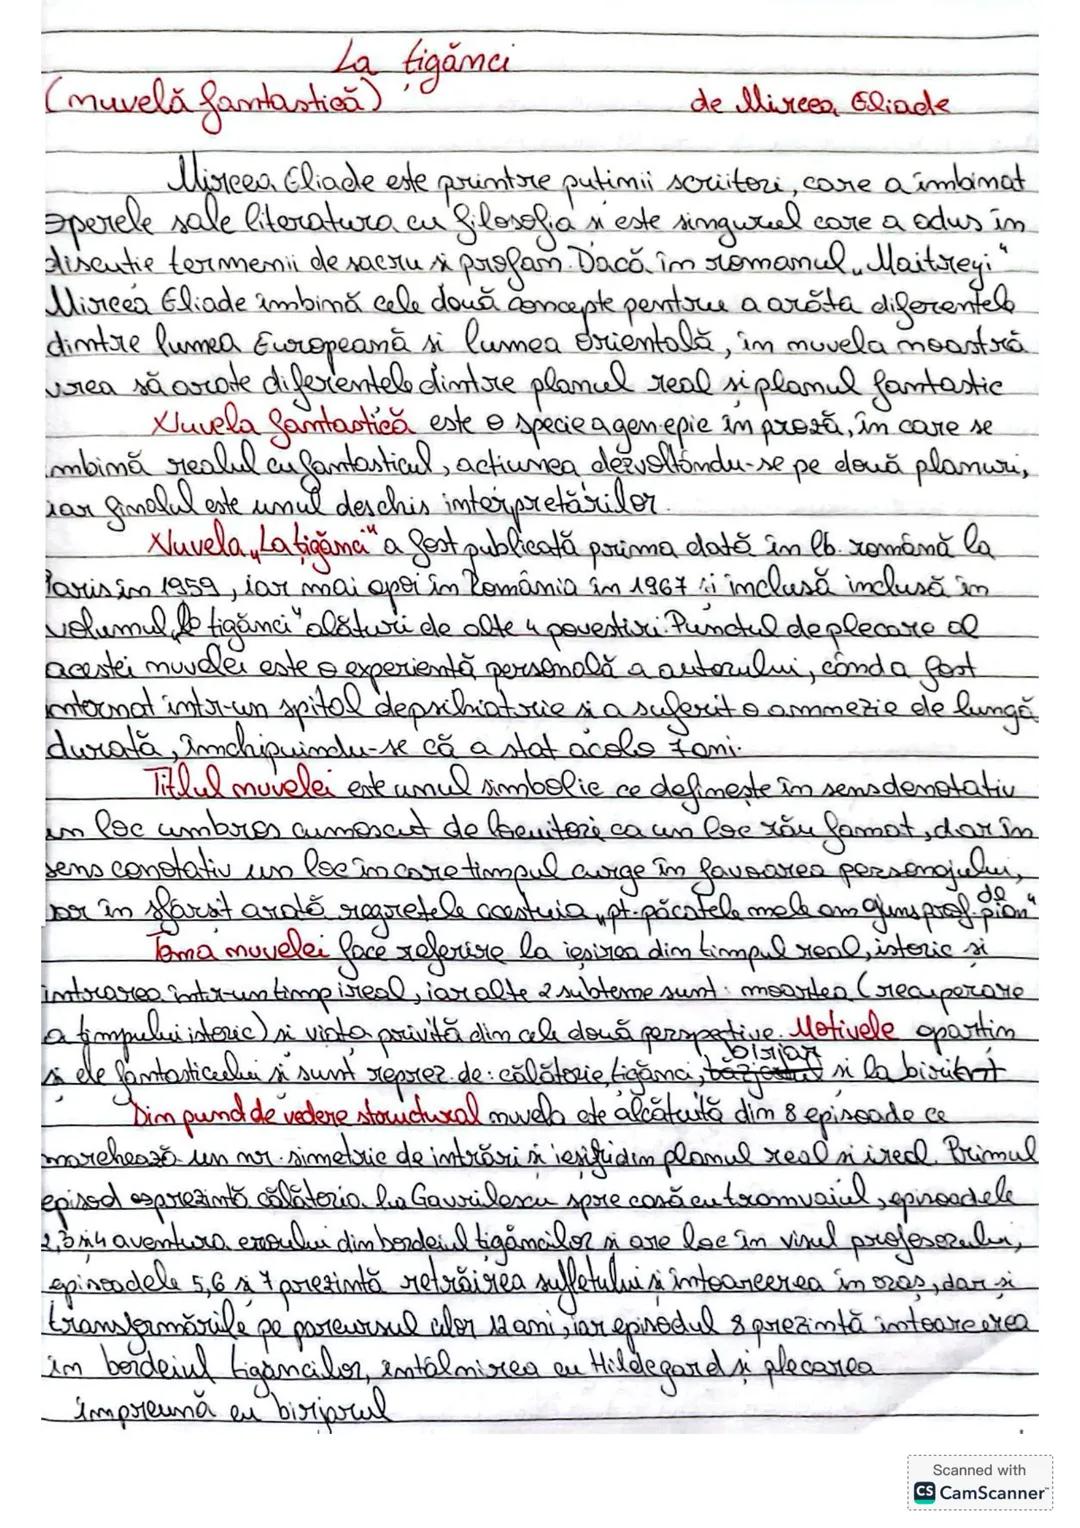 La țigănci
(nuvelă fantastică)
de Mircea Eliade
Mircea Eliade este printre puținii scriitori, care a îmbinat
operele sale literatura cu filosofia și este singurul care a adus în
discuție termenii de sacru și profan. Dacă în romanul „Maitreyi"
Mircea Eliade îmbină cele două concepte pentru a arăta diferențele
dintre lumea Europeană si lumea Orientală, în nuvela noastră
vrea să arate diferentele dintre planul real și planul fantastic
Nuvela fantastică este o specie a gen. epic în proză, în care se
îmbină realul cu fantasticul, acțiunea dezvoltându-se pe două planuri,
iar finalul este unul deschis interpretărilor.
Nuvela „La țigănci" a fost publicată prima dată în lb. română la
Paris în 1959, iar mai apoi în România în 1967 și inclusă inclusă în
volumul „La țigănci" alături de alte 4 povestiri. Punctul de plecare al
acestei nuvelei este o experientă personală a autorului, când a fost
internat într-un spital de psihiatrie și a suferit o amnezie de lungă
durată, închipuindu-se că a stat acolo 7 ani.
Titlul nuvelei este unul simbolic ce definește în sens denotativ
un loc umbros cunoscut de locuitori ca un loc rău famat, dar în
sens conotativ un loc în care timpul curge în favoarea personajului,
iar în sfârsit arată regretele acestuia „pt. păcatele mele am ajuns prof. de pian"
Tema nuvelei face referire la ieșirea din timpul real, istoric si
intrarea într-un timp ireal, iar alte 2 subteme sunt: moartea (recuperare
a timpului istoric) și viața privită din cele două perspective. Motivele apartin
și ele fantasticului și sunt reprez. de: călătorie, țigănci, birjar și labirint
Din punct de vedere structural nuvela este alcătuită din 8 episoade ce
marchează un nr. simetric de intrări și ieșiri din planul real și ireal. Primul
episod prezintă călătoria lui Gavrilescu spre casă cu tramvaiul, episoadele
2,3 și 4 aventura eroului din bordeiul țigăncilor și are loc în visul profesorului,
episoadele 5,6 și 7 prezintă retrăirea sufletului și întoarcerea în oraș, dar și
transformările pe parcursul celor 12 ani, iar episodul 8 prezintă întoarcerea
în bordeiul țigăncilor, întâlnirea cu Hildegard și plecarea
împreună cu birjarul
Scanned with
CS CamScanner